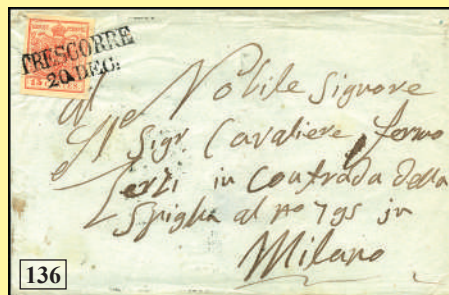 TRESCORRE
20 DEC.
Al Nobile Signore
Sigr. Cavaliere fermo
Terzi in Contrada della
Spiglia al no 795 in
Milano
136